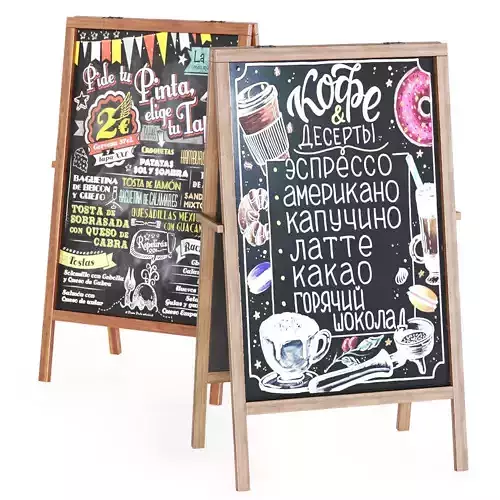 Pide tu
Pinta,
elige
tu Ta
La
2€
Cerveza
tapa XXL
CROQUETAS
PATATAS
SOL Y SOMBRA
BAGUETINA
DE BEICON
Y QUESO
TOSTA DE JAMÓN
BAGUETINA DE CALAMARES
QUESADILLAS MEXI
CON GUACAM
SAND
MIXTO
TOSTA DE
SOBRASADA
CON QUESO DE
CABRA
Rac
Tostas
Solomillo con Cebolla
y Queso de Cabra
Salmón con
Queso de untar
Huevos
Queso
Кофе
&
ДЕСЕРТЫ
ЭСПРЕССО
АМЕРИКАНО
КАПУЧИНО
ЛАТТЕ
КАКАО
ГОРЯЧИЙ
ШОКОЛАД